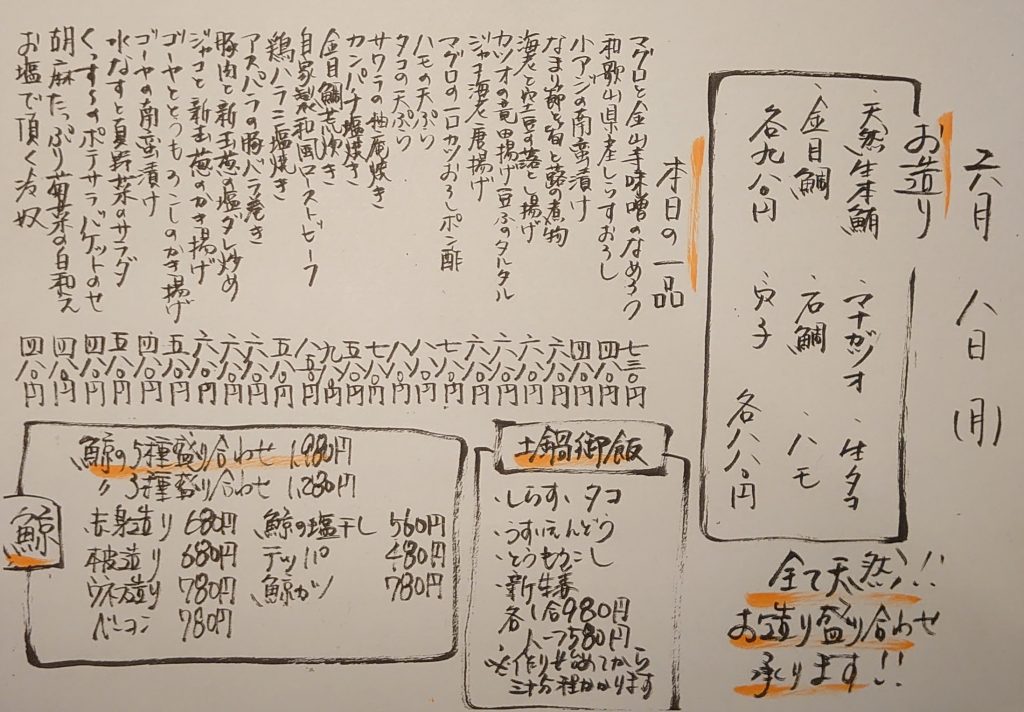 六月 八日 (月)
お造り
・天然生本鮪 ・マナガツオ ・生タコ
・金目鯛 ・石鯛 ・ハモ
各九八〇円 ・穴子 各八八〇円
全て天然!!
お造り盛り合わせ
承ります!!
本日の一品
マグロと金山寺味噌のなめろう 七三〇円
和歌山県産しらすおろし 四八〇円
小アジの南蛮漬け 四八〇円
なまり節と筍と蕗の煮物 六八〇円
海老と空豆の落とし揚げ 六八〇円
カツオの竜田揚げ豆ふのタルタル 六八〇円
ジャコ海老唐揚げ 六八〇円
マグロの一口カツおろしポン酢 七八〇円
ハモの天ぷら 八八〇円
タコの天ぷら 八八〇円
サワラの柚庵焼き 七八〇円
カンパチ塩焼き 五八〇円
金目鯛煮付け 九八〇円
自家製和風ローストビーフ 八五〇円
鶏ハラミ塩焼き 五八〇円
アスパラの豚バラ巻き 六八〇円
豚肉と新玉葱の塩ダレ炒め 六八〇円
ジャコと新玉葱のかき揚げ 六八〇円
ゴーヤととうもろこしのかき揚げ 五八〇円
ゴーヤの南蛮漬け 四八〇円
水なすと夏野菜のサラダ 五八〇円
ポテサラバケットのせ 四八〇円
胡麻たっぷり菊菜の白和え 四八〇円
お塩で頂く冷奴 四八〇円
土鍋御飯
・しらす、タコ
・うすいえんどう
・とうもろこし
・新生姜
各一合980円
ハーフ580円
※作り始めてから
三十分程かかります
鯨
鯨の5種盛り合わせ 1,980円
〃 3種盛り合わせ 1,280円
赤身造り 680円 鯨の塩干し 560円
本皮造り 680円 テッパ 480円
ウネ造り 780円 鯨カツ 780円
ベーコン 780円